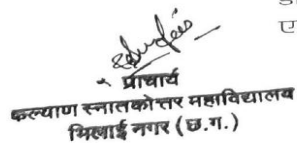 प्राचार्य
कल्याण स्नातकोत्तर महाविद्यालय
भिलाई नगर (छ.ग.)